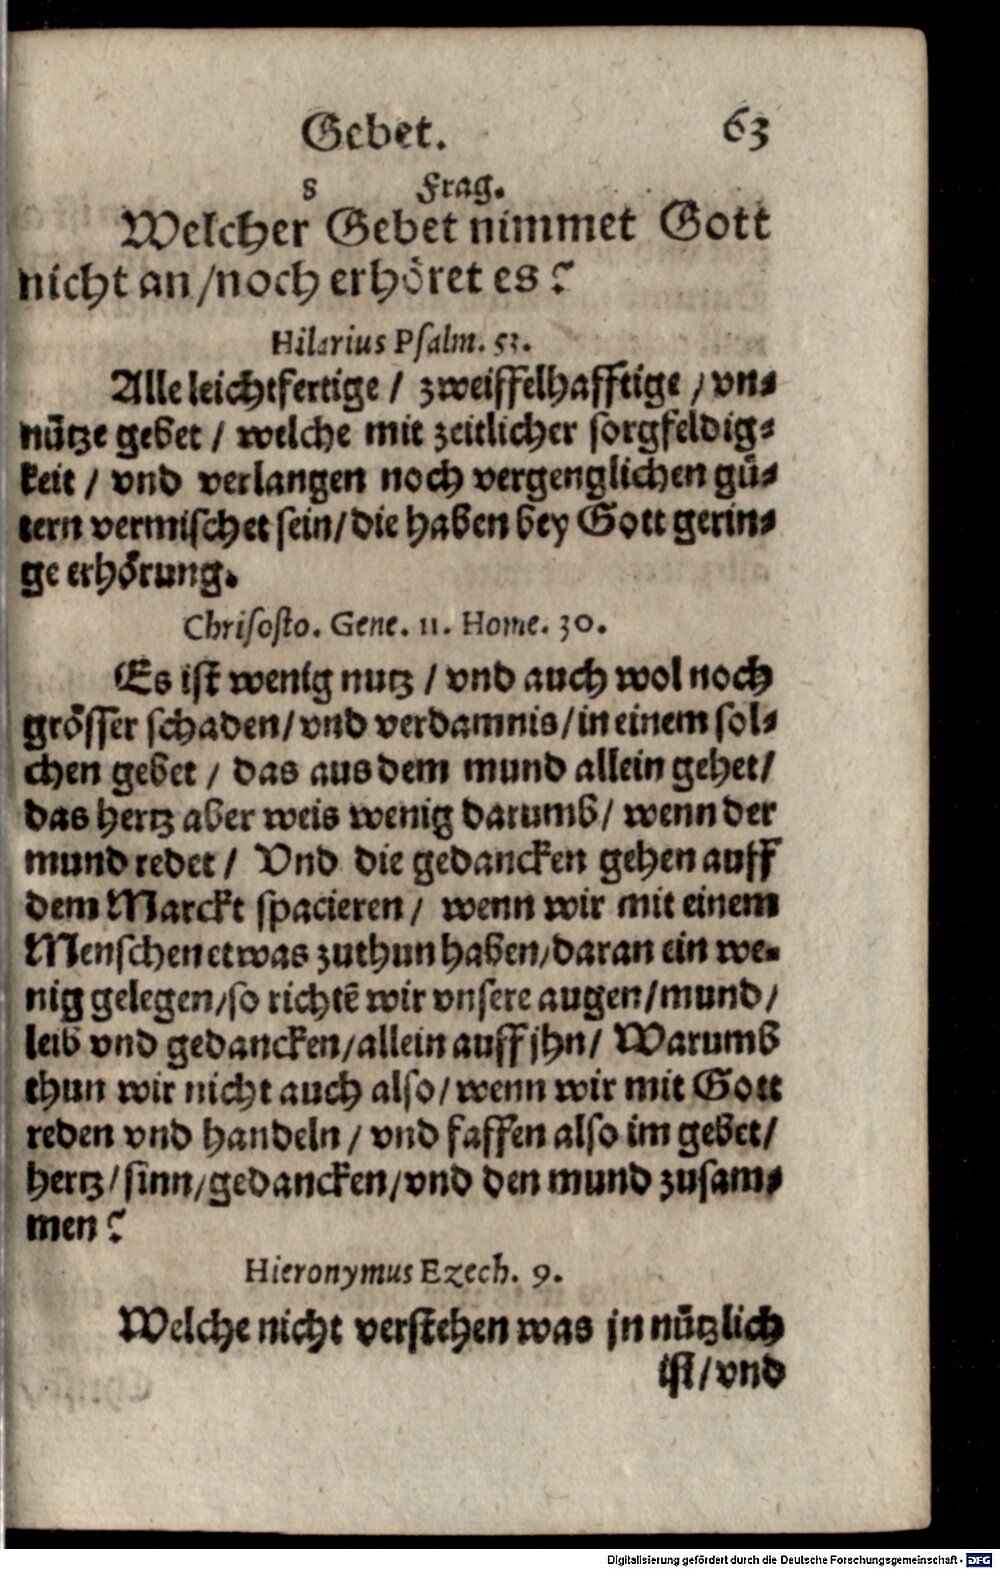 Gebet. 63
8 Frag.
Welcher Gebet nimmet Gott
nicht an / noch erhöret es?
Hilarius Psalm. 53.
Alle leichtfertige / zweiffelhafftige / vn⸗
nütze gebet / welche mit zeitlicher sorgfeldig⸗
keit / vnd verlangen noch vergenglichen gü⸗
tern vermischet sein / die haben bey Gott gerin⸗
ge erhörung.
Chrisosto. Gene. 11. Home. 30.
Es ist wenig nutz / vnd auch wol noch
grösser schaden / vnd verdamnis / in einem sol⸗
chen gebet / das aus dem mund allein gehet /
das hertz aber weis wenig darumb / wenn der
mund redet / Vnd die gedancken gehen auff
dem Marckt spacieren / wenn wir mit einem
Menschen etwas zuthun haben / daran ein we⸗
nig gelegen / so richtē wir vnsere augen / mund /
leib vnd gedancken / allein auff jhn / Warumb
thun wir nicht auch also / wenn wir mit Gott
reden vnd handeln / vnd fassen also im gebet /
hertz / sinn / gedancken / vnd den mund zusam⸗
men?
Hieronymus Ezech. 9.
Welche nicht verstehen was jn nützlich
ist / vnd
Digitalisierung gefördert durch die Deutsche Forschungsgemeinschaft - DFG